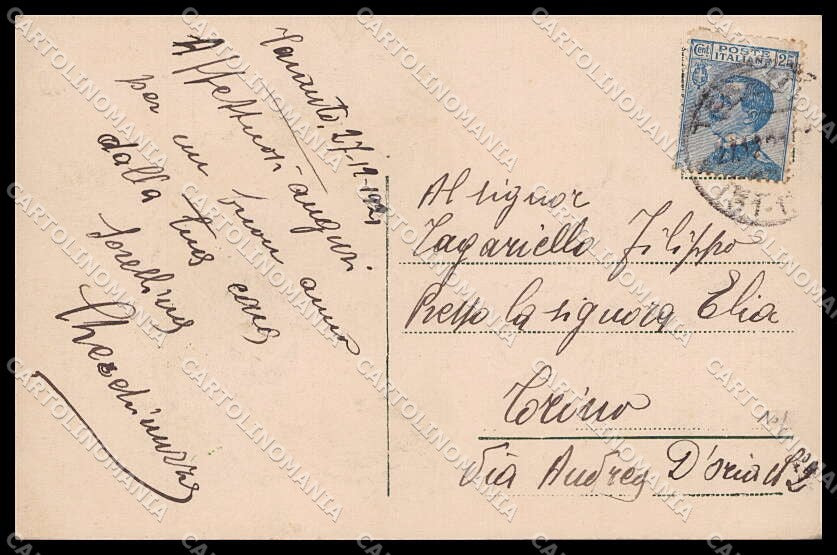 Taranto, 27-12-1921
Affettuosi auguri
per un buon anno
dalla tua cara
sorellina
Al signor
Tagariello Filippo
Presso la signora Elia
Torino
Via Andrea D'oria N° 2
POSTE
ITALIANE
Cent 25
CARTOLINOMANIA